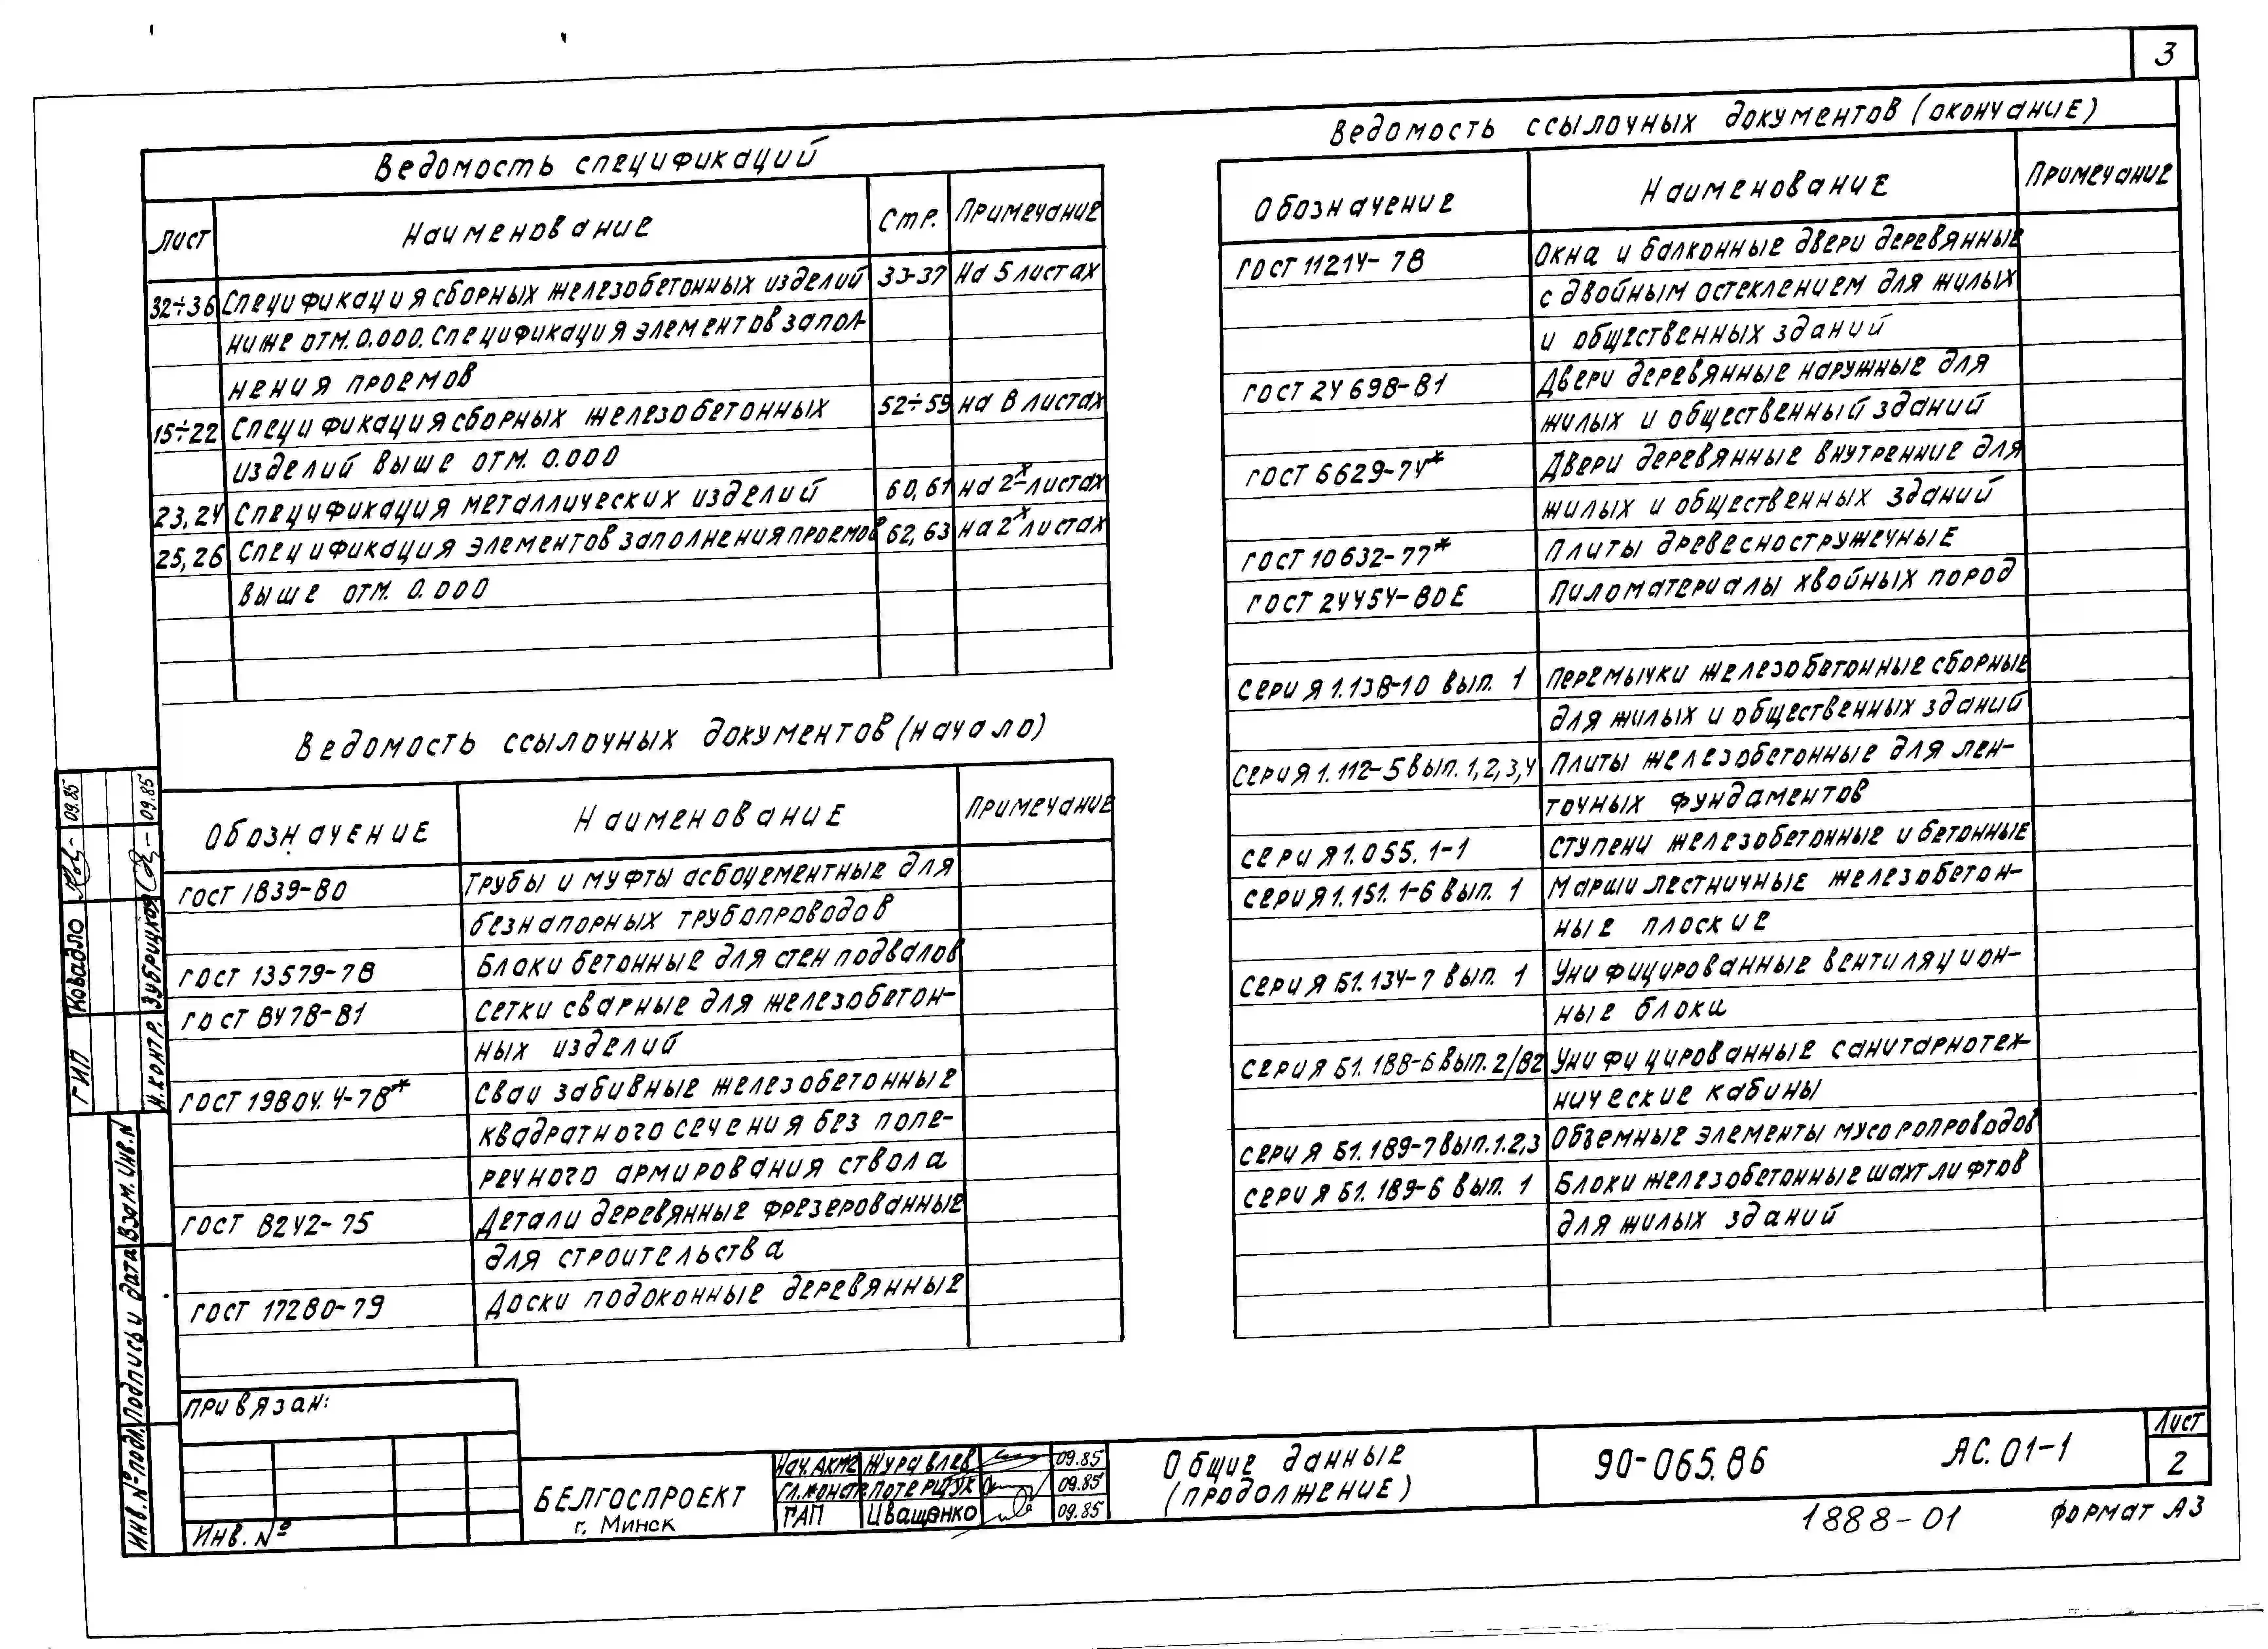 3
Ведомость спецификаций
Лист Наименование Стр. Примечание
32÷36 Спецификация сборных железобетонных изделий 33-37 на 5 листах
ниже отм. 0.000. Спецификация элементов запол-
нения проемов
15÷22 Спецификация сборных железобетонных 52÷59 на 8 листах
изделий выше отм. 0.000
23,24 Спецификация металлических изделий 60,61 на 2х листах
25,26 Спецификация элементов заполнения проемов 62,63 на 2х листах
выше отм. 0.000
Ведомость ссылочных документов (начало)
Обозначение Наименование Примечание
ГОСТ 1839-80 Трубы и муфты асбоцементные для
безнапорных трубопроводов
ГОСТ 13579-78 Блоки бетонные для стен подвалов
ГОСТ 8478-81 Сетки сварные для железобетон-
ных изделий
ГОСТ 19804.4-78* Сваи забивные железобетонные
квадратного сечения без попе-
речного армирования ствола
ГОСТ 8242-75 Детали деревянные фрезерованные
для строительства
ГОСТ 17280-79 Доски подоконные деревянные
Ведомость ссылочных документов (окончание)
Обозначение Наименование Примечание
ГОСТ 11214-78 Окна и балконные двери деревянные
с двойным остеклением для жилых
и общественных зданий
ГОСТ 24698-81 Двери деревянные наружные для
жилых и общественный зданий
ГОСТ 6629-74* Двери деревянные внутренние для
жилых и общественных зданий
ГОСТ 10632-77* Плиты древесностружечные
ГОСТ 24454-80Е Пиломатериалы хвойных пород
Серия 1.138-10 вып. 1 Перемычки железобетонные сборные
для жилых и общественных зданий
Серия 1.112-5 вып. 1,2,3,4 Плиты железобетонные для лен-
точных фундаментов
Серия 1.055.1-1 Ступени железобетонные и бетонные
Серия 1.151.1-6 вып. 1 Марши лестничные железобетон-
ные плоские
Серия Б1.134-7 вып. 1 Унифицированные вентиляцион-
ные блоки
Серия Б1.188-6 вып. 2/82 Унифицированные санитарнотех-
нические кабины
Серия Б1.189-7 вып.1.2,3 Объемные элементы мусоропроводов
Серия Б1.189-6 вып. 1 Блоки железобетонные шахт лифтов
для жилых зданий
ГИП Ковадло 09.85
Н.контр. Зубрицкая 09.85
Инв. № подл. Подпись и дата Взам. Инв. N
Привязан:
Инв. №
БЕЛГОСПРОЕКТ
г. Минск
Нач. АКМ2 Журавлев 09.85
Гл.констр. Потерщук 09.85
ГАП Иващенко 09.85
Общие данные
(продолжение)
90-065.86 АС.01-1
Лист
2
1888-01 Формат А3